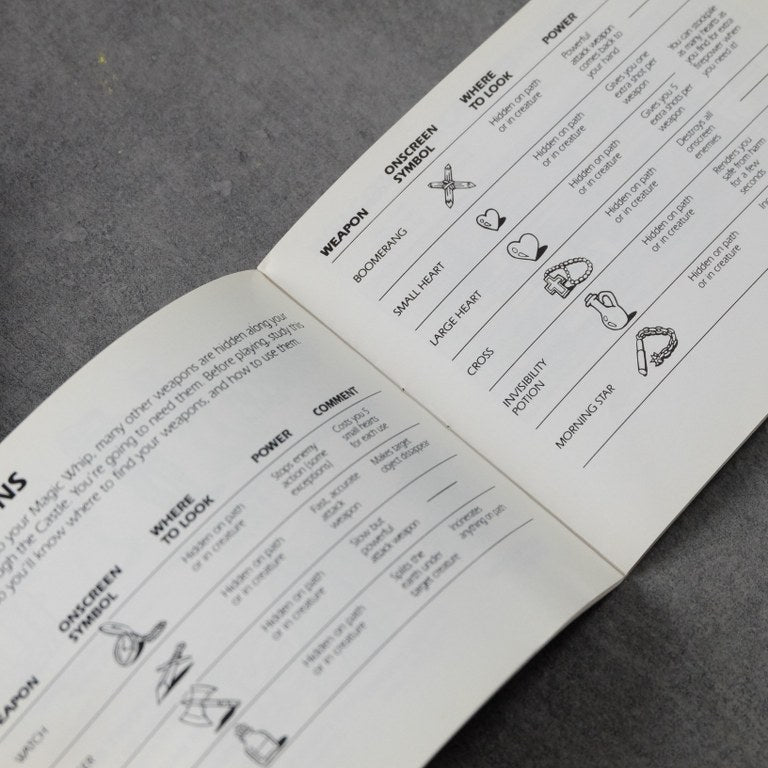 NS
o your Magic Whip, many other weapons are hidden along your
ugh the Castle. You're going to need them. Before playing, study this
o you'll know where to find your weapons, and how to use them.
EAPON
ONSCREEN
SYMBOL
WHERE
TO LOOK
POWER
COMMENT
WATCH
Hidden on path
or in creature
Stops enemy
action (some
exceptions)
Costs you 5
small hearts
for each use
ER
Hidden on path
or in creature
Fast, accurate
attack
weapon
Makes target
object disappear
Hidden on path
or in creature
Slow but
powerful
attack weapon
Hidden on path
or in creature
Splits the
earth under
target creature
Incinerates
anything on path
WEAPON
ONSCREEN
SYMBOL
WHERE
TO LOOK
POWER
BOOMERANG
Hidden on path
or in creature
Powerful
attack weapon
comes back to
your hand
SMALL HEART
Hidden on path
or in creature
Gives you one
extra shot per
weapon
You can stockpile
as many hearts as
you find for extra
firepower when
you need it!
LARGE HEART
Hidden on path
or in creature
Gives you 5
extra shots per
weapon
CROSS
Hidden on path
or in creature
Destroys all
onscreen
enemies
INVISIBILITY
POTION
Hidden on path
or in creature
Renders you
safe from harm
for a few
seconds
MORNING STAR
Hidden on path
or in creature